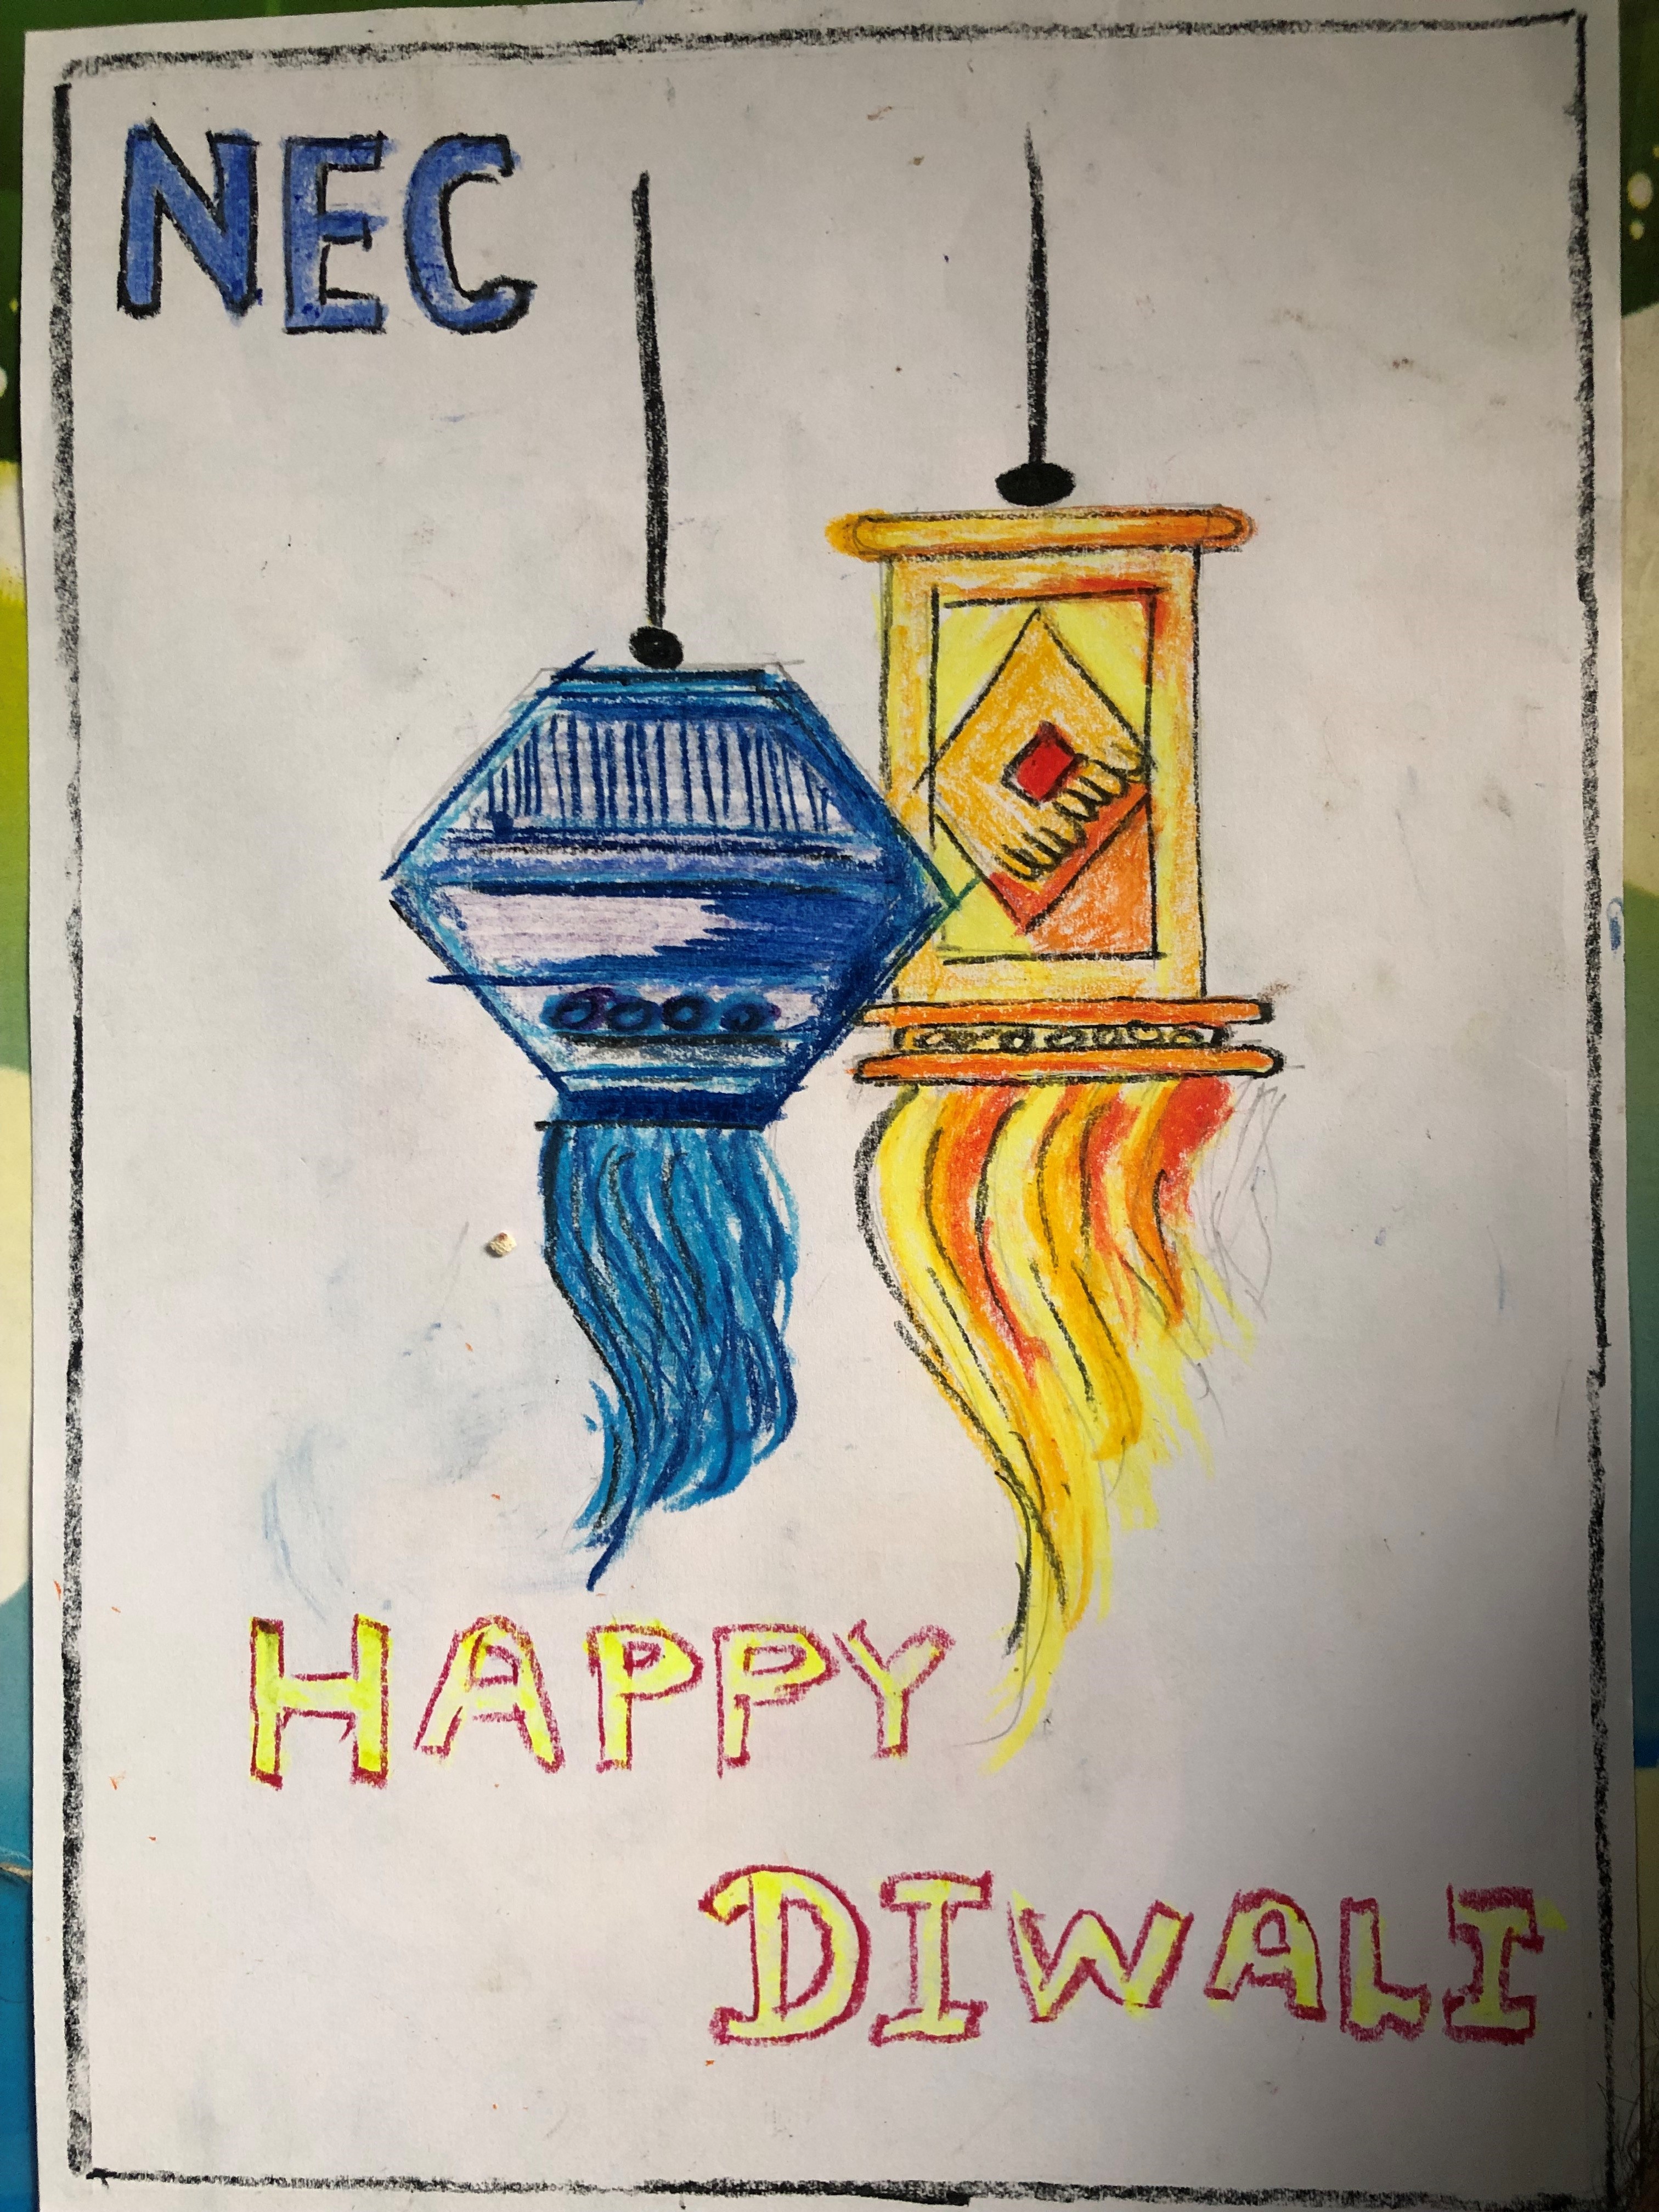 NEC
HAPPY
DIWALI